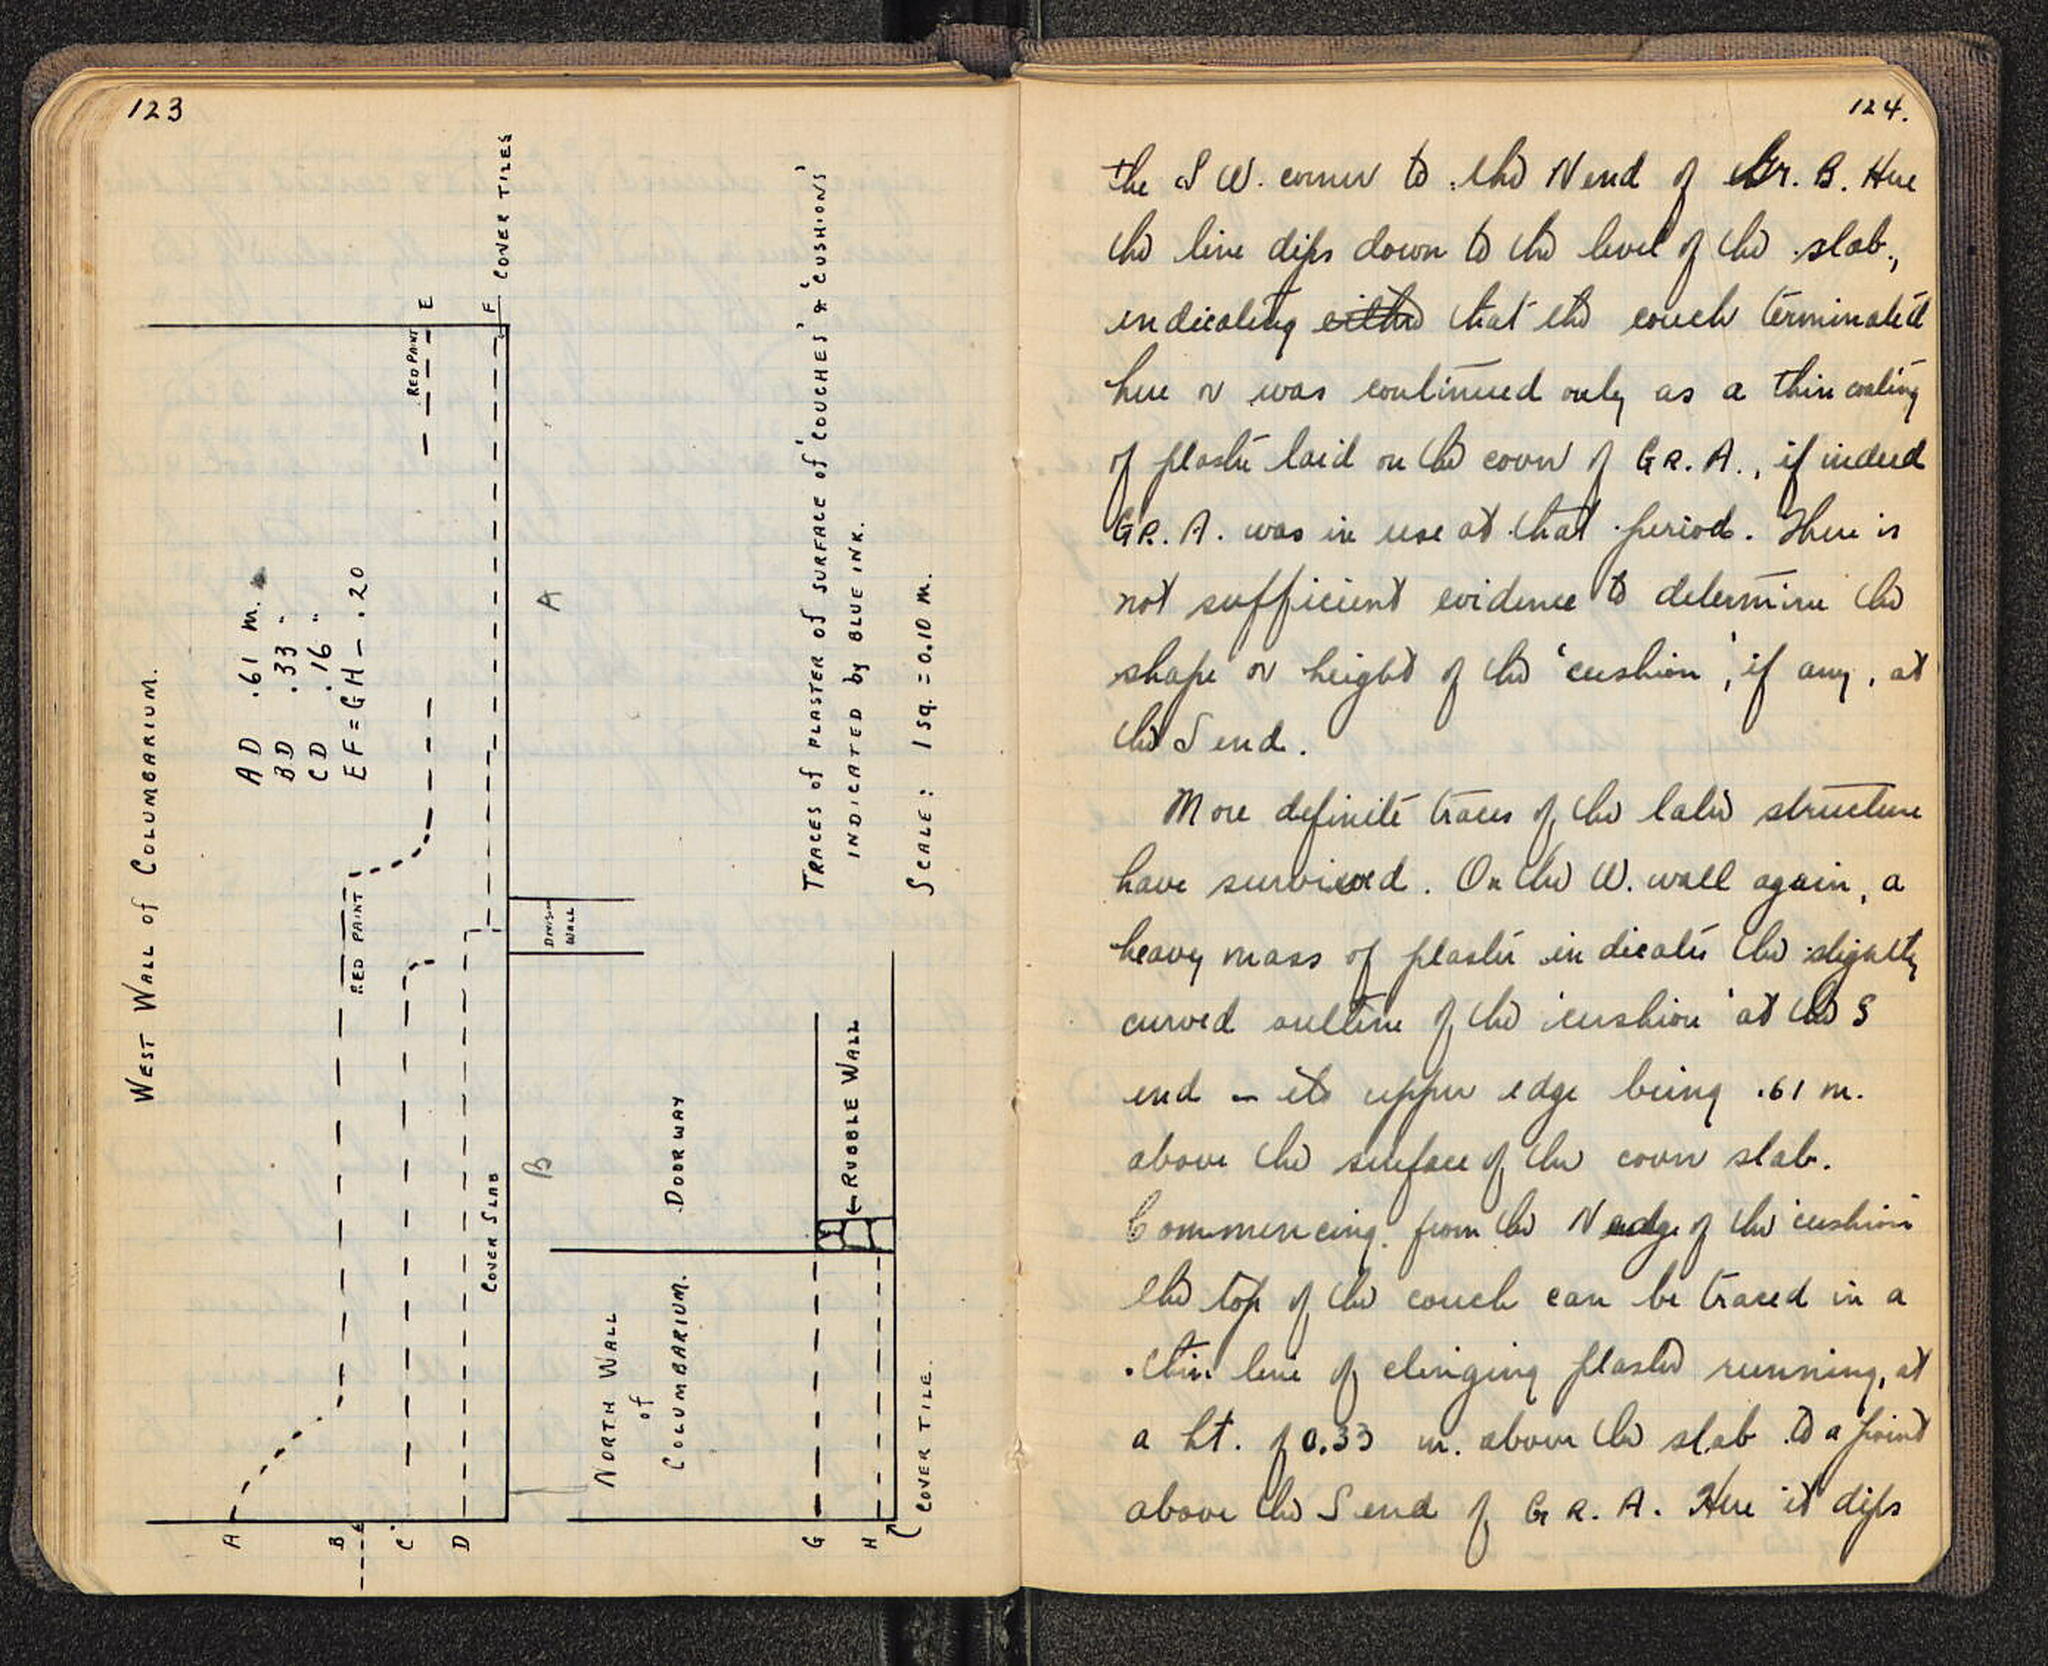 123
WEST WALL of COLUMBARIUM.
AD .61 m.
BD .33 "
CD .16 "
EF = GH — .20
RED PAINT
RED PAINT
E
F
COVER TILES
A
DIVISION
WALL
COVER SLAB
B
A
B
C
D
TRACES of PLASTER of SURFACE of 'COUCHES' & 'CUSHIONS'
INDICATED by BLUE INK.
SCALE: 1 sq. = 0.10 m.
DOORWAY
← RUBBLE WALL
NORTH WALL
of
COLUMBARIUM.
G
H
COVER TILE.
124.
the S W. corner to the N end of Gr. B. Here
the line dips down to the level of the slab,
indicating either that the couch terminated
here or was continued only as a thin coating
of plaster laid on the cover of GR. A., if indeed
GR. A. was in use at that period. There is
not sufficient evidence to determine the
shape or height of the 'cushion', if any, at
the S end.
More definite traces of the later structure
have survived. On the W. wall again, a
heavy mass of plaster indicates the slightly
curved outline of the 'cushion' at the S
end — its upper edge being .61 m.
above the surface of the cover slab.
Commencing from the N edge of the 'cushion'
the top of the couch can be traced in a
thin line of clinging plaster running, at
a ht. of 0.33 m. above the slab to a point
above the S end of GR. A. Here it dips